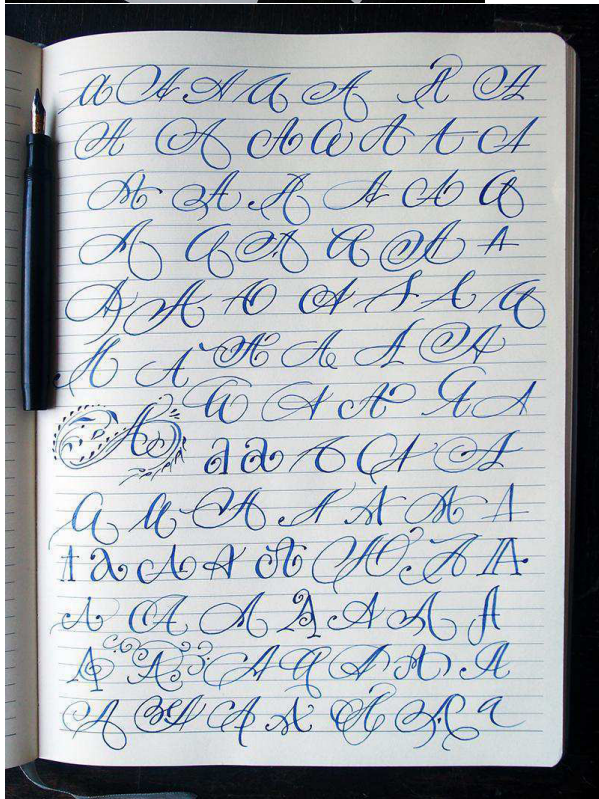 a A A a A A A
A A A a A A A
A A A A A A
A A A A A A
A A A A A A A
A A A A A A
A A A A A
A a a A A A
A A A A A A A
A a A A A A A A
A A A A A A A
A A A A A A A
A A A A A A a